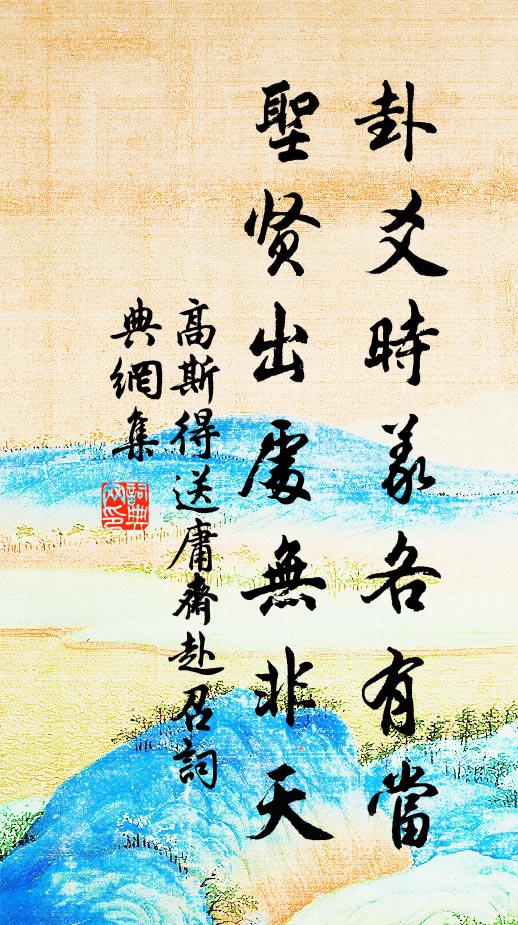 卦爻時義各有當
聖賢出處無非天
高斯得送庸齋赴召詞
典網集
詞典
网印